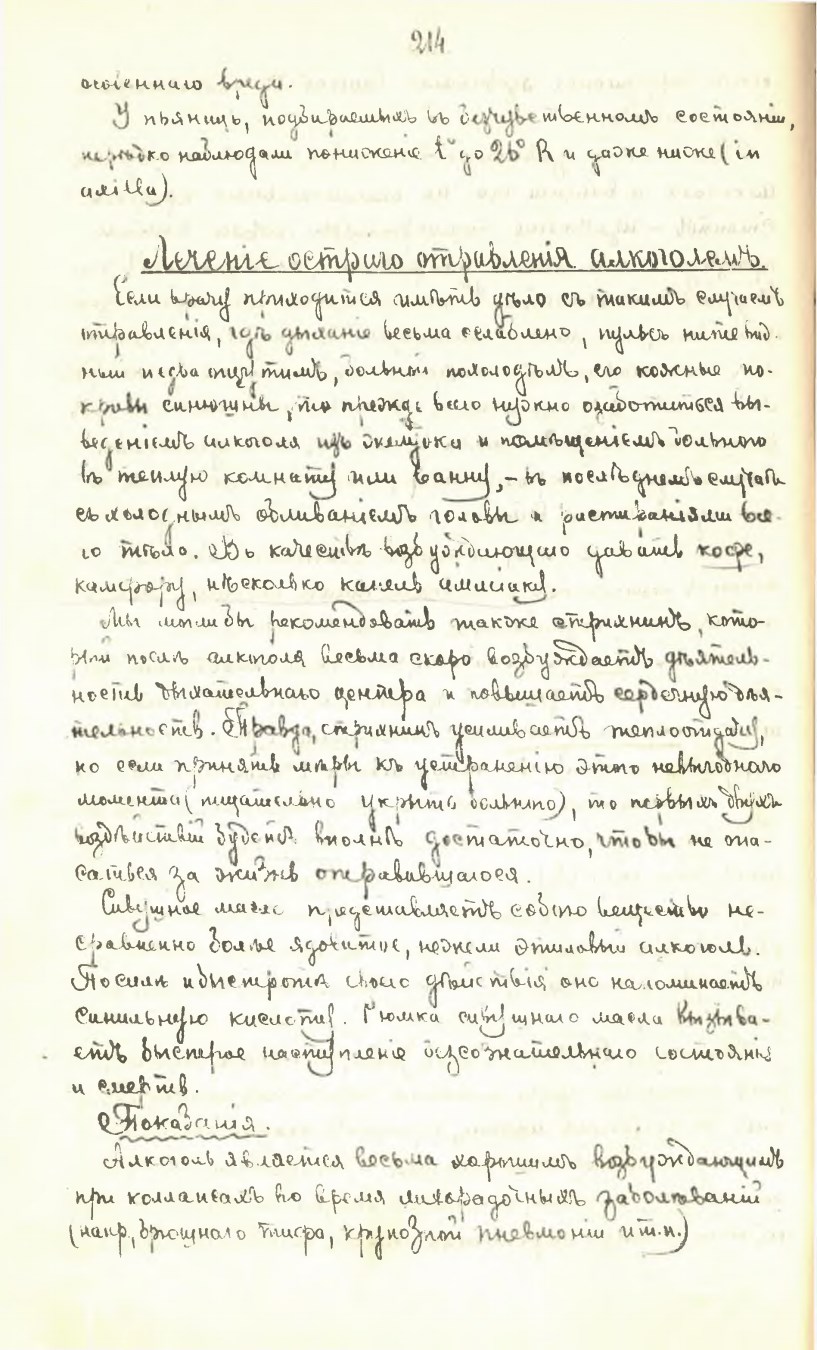 214
особеннаго вреда.
У пьяницъ, подбираемыхъ въ безчувственномъ состояніи,
нерѣдко наблюдали пониженіе t° до 26° R и даже ниже (in
axilla).
Леченіе остраго отравленія алкоголемъ.
Если врачу приходится имѣть дѣло съ такимъ случаемъ
отравленія, гдѣ дыханіе весьма ослаблено, пульсъ нитевид-
ный и едва ощутимъ, больной похолодѣлъ, его кожные по-
кровы синюшны, то прежде всего нужно озаботиться вы-
веденіемъ алкоголя изъ желудка и помѣщеніемъ больного
въ теплую комнату или ванну, – въ послѣднемъ случаѣ
съ холоднымъ обливаніемъ головы и растираніями все-
го тѣла. Въ качествѣ возбуждающаго давать кофе,
камфору, нѣсколько капель амміаку.
Мы могли бы рекомендовать также стрихнинъ, кото-
рый послѣ алкоголя весьма скоро возбуждаетъ дѣятель-
ность дыхательнаго центра и повышаетъ сердечную дѣя-
тельность. Правда, стрихнинъ усиливаетъ теплоотдачу,
но если принять мѣры къ устраненію этого невыгоднаго
момента (тщательно укрыть больного), то первыхъ двухъ
воздѣйствій будетъ вполнѣ достаточно, чтобы не опа-
саться за жизнь отравившагося.
Сивушное масло представляетъ собою вещество не-
сравненно болѣе ядовитое, нежели этиловый алкоголь.
По силѣ и быстротѣ своего дѣйствія оно напоминаетъ
синильную кислоту. Рюмка сивушнаго масла вызыва-
етъ быстрое наступленіе безсознательнаго состоянія
и смерть.
Показанія.
Алкоголь является весьма хорошимъ возбуждающимъ
при коллапсахъ во время лихорадочныхъ заболѣваній
(напр, брюшного тифа, крупозной пневмоніи и т.п.)